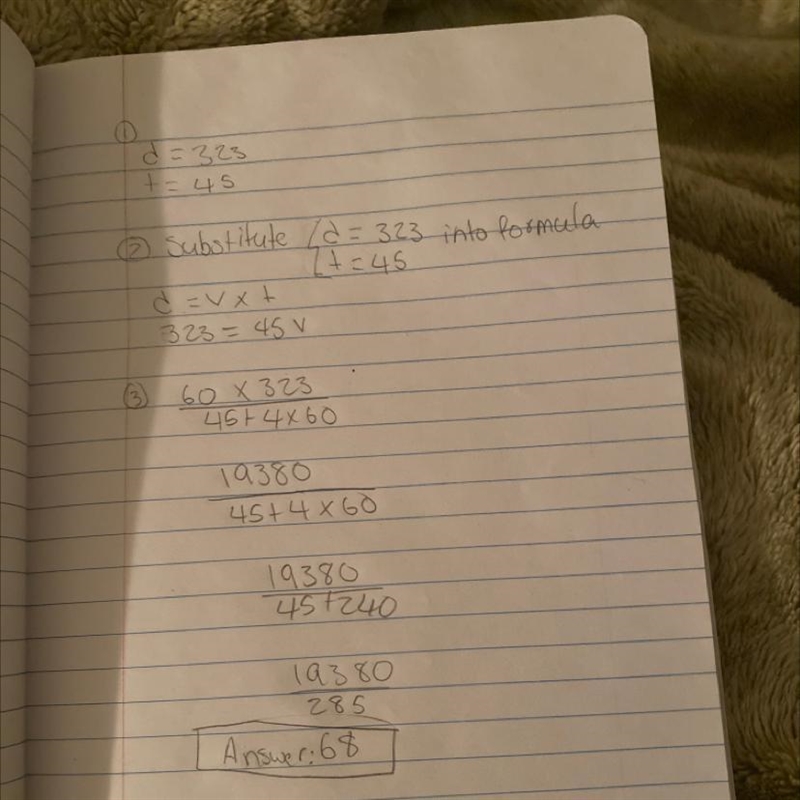 ①
d = 323
t = 45
② Substitute { d = 323 into formula
t = 45
d = v x t
323 = 45 v
③ 60 x 323
45 + 4 x 60
19380
45 + 4 x 60
19380
45 + 240
19380
285
Answer: 68